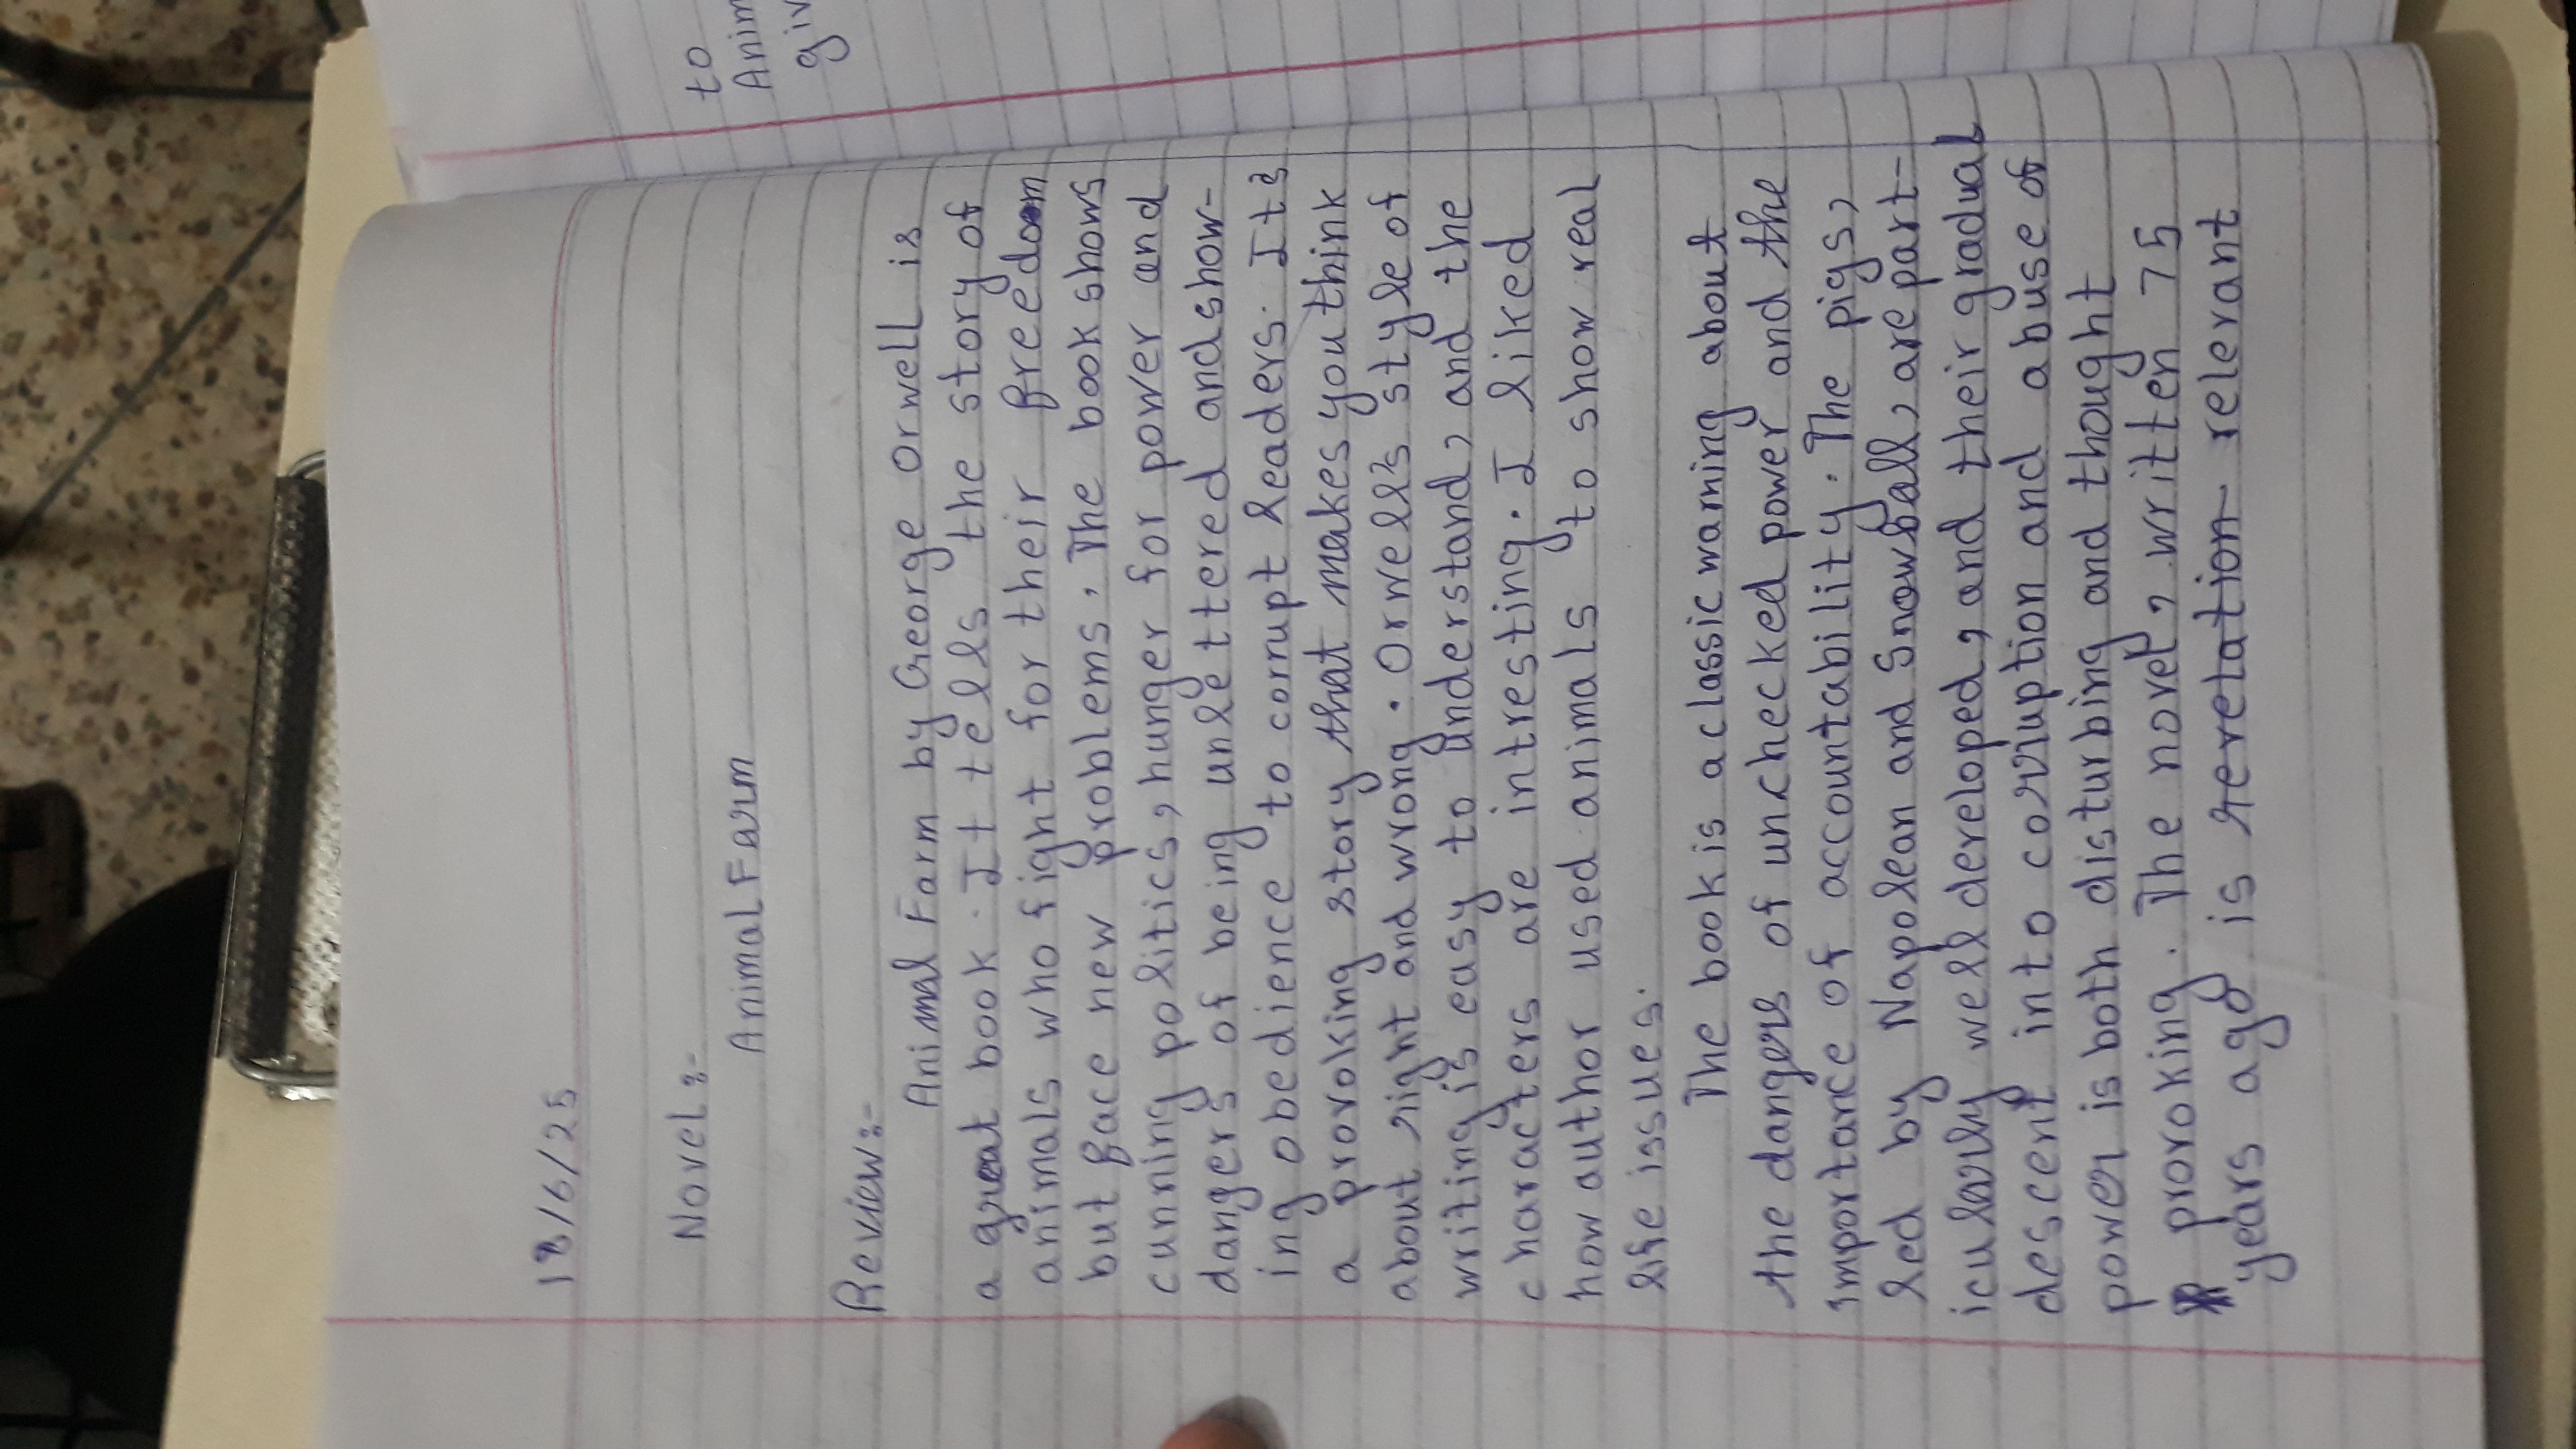 18/6/25
Novel :-
Animal Farm
Review:-
Animal Farm by George Orwell is
a great book. It tells the story of
animals who fight for their freedom
but face new problems. The book shows
cunning politics, hunger for power and
dangers of being unlettered and show-
ing obedience to corrupt leaders. Its
a provoking story that makes you think
about right and wrong. Orwell's style of
writing is easy to understand, and the
characters are intresting. I liked
how author used animals to show real
life issues.
The book is a classic warning about
the dangers of unchecked power and the
importance of accountability. The pigs,
led by Napolean and Snowball, are part-
icularly well developed, and their gradual
descent into corruption and abuse of
power is both disturbing and thought
provoking. The novel, written 75
years ago is revelation relevant
to
Anim
giv